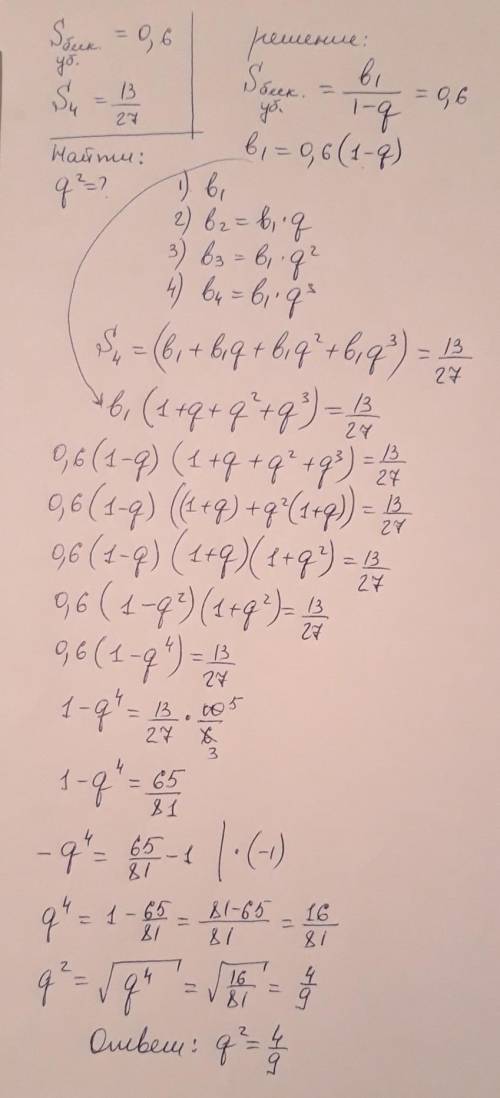 Sбеск. уб. = 0,6
S₄ = 13/27
Найти:
q² = ?
решение:
Sбеск. уб. = b₁/(1-q) = 0,6
b₁ = 0,6(1-q)
1) b₁
2) b₂ = b₁·q
3) b₃ = b₁·q²
4) b₄ = b₁·q³
S₄ = (b₁ + b₁q + b₁q² + b₁q³) = 13/27
b₁(1+q+q²+q³) = 13/27
0,6(1-q)(1+q+q²+q³) = 13/27
0,6(1-q)((1+q)+q²(1+q)) = 13/27
0,6(1-q)(1+q)(1+q²) = 13/27
0,6(1-q²)(1+q²) = 13/27
0,6(1-q⁴) = 13/27
1-q⁴ = 13/27 · 10 5/6 3
1-q⁴ = 65/81
-q⁴ = 65/81 - 1 | · (-1)
q⁴ = 1 - 65/81 = (81-65)/81 = 16/81
q² = √q⁴ = √(16/81) = 4/9
Ответ: q² = 4/9